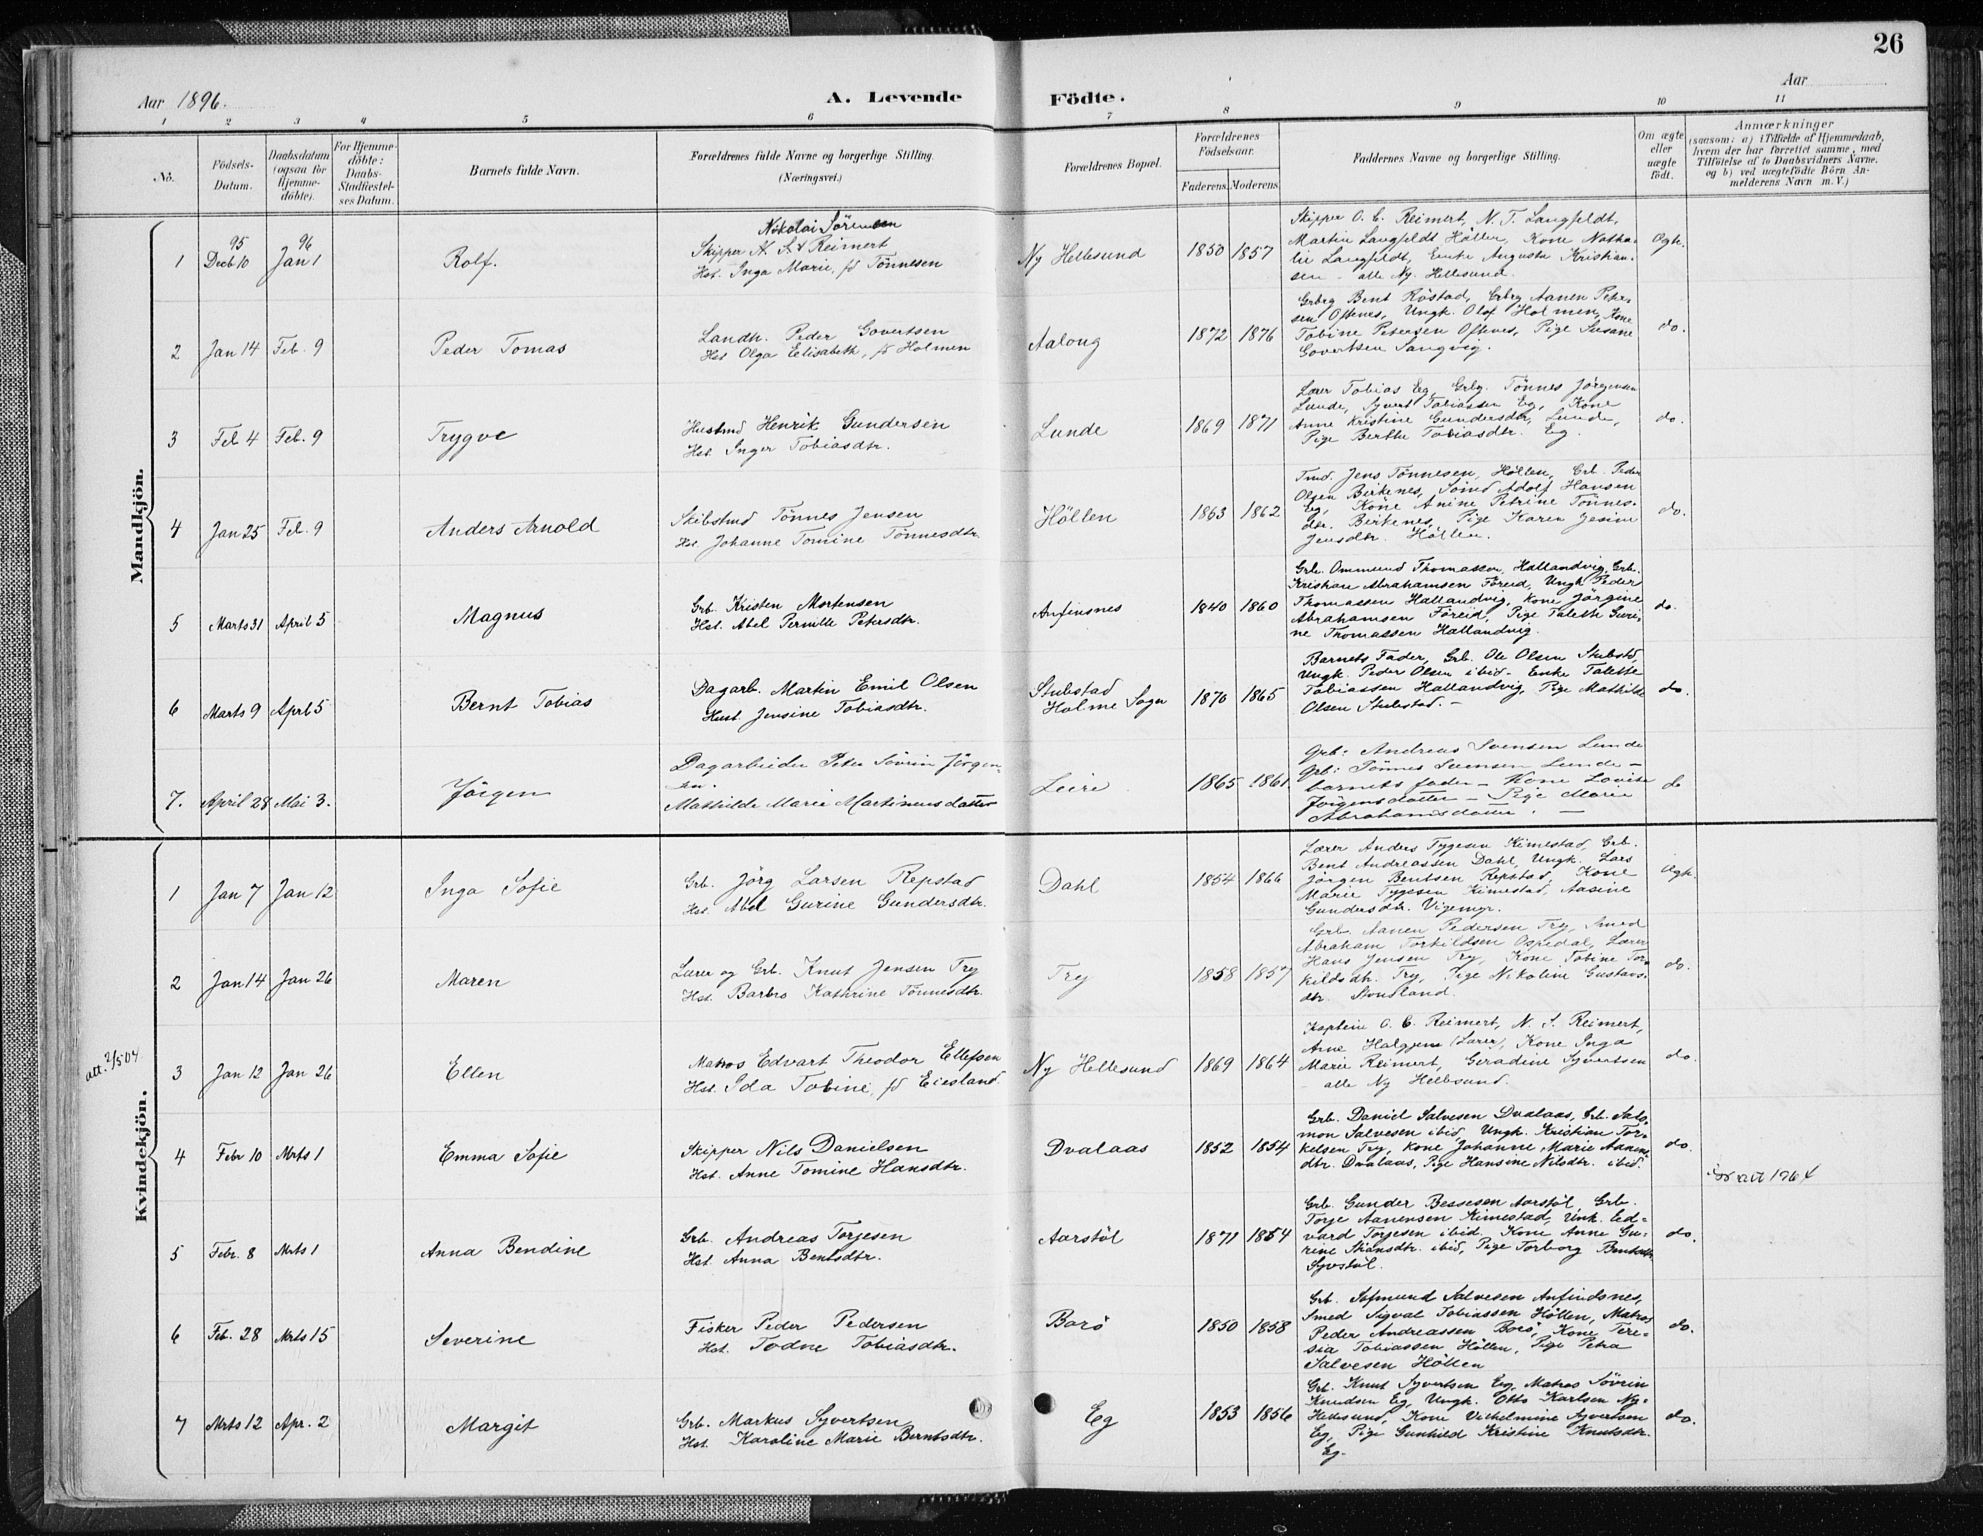 26
Aar 1896.
A. Levende Födte.
Aar
1 2 3 4 5 6 7 8 9 10 11
No.
Födsels-
Datum.
Daabsdatum
(ogsaa for
Hjemme-
döbte).
For Hjemme-
döbte:
Daabs-
Stadfæstel-
ses Datum.
Barnets fulde Navn.
Forældrenes fulde Navne og borgerlige Stilling.
(Næringsvei.)
Forældrenes Bopæl.
Forældrenes
Födselsaar.
Faderens. Moderens.
Faddernes Navne og borgerlige Stilling.
Om ægte
eller
uægte
födt.
Anmærkninger
(saasom: a) i Tilfælde af Hjemmedaab,
hvem der har forrettet samme, med
Tilföielse af to Daabsvidners Navne,
og b) ved uægtefödte Börn An-
melderens Navn m. V.)
Mandkjön.
1
95
Decb 10
96
Jan 1
Rolf.
Nikolai Sörensen
Skipper N. S. Reimert
Hst. Inga Marie, fd Tönnesen
Ny Hellesund
1850 1857
Skipper O. C. Reimert, N. T. Langfeldt,
Martin Langfeldt Höllen, Kone Natha-
lie Langfeldt, Enke Augusta Kristian-
sen - alle Ny. Hellesund.
Ogt.
2 Jan 14 Feb. 9
Peder Tomas
Landh. Peder Govertsen
Hst Olga Eelisabeth, fd Holmen
Aalong
1872 1876
Grbrg Bent Röstad, Grbrg Aanen Peter-
sen Oftenes, Ungk. Olaf Holmen, Kone
Tobine Petersen Oftenes, Pige Susane
Govertsen Langvig.
do.
3 Feb 4 Feb. 9
Trygve
Husmd Henrik Gundersen
Hst. Inger Tobiasdtr.
Lunde
1869 1871
Lærer Tobias Eg, Grbg. Tönnes Jörgensen
Lunde, Syvert Tobiassen Eg, Kone
Anne Kristine Gundersdtr, Lunde,
Pige Berthe Tobiasdtr. Eg.
do.
4 Jan 25 Feb. 9
Anders Arnold
Skibstmd Tönnes Jensen
Hst. Johanne Tomine Tönnesdtr.
Höllen
1863 1862
Tmd. Jens Tönnesen, Höllen, Grb. Peder
Olsen Birkenes, Sömd Adolf Hansen
Eg, Kone Anine Petrine Tönnes-
dtr. Birkenes, Pige Karen Jesine
Jensdtr. Höllen.
do.
5 Marts 31 April 5
Magnus
Grb. Kristen Mortensen
Hst. Abel Pernille Petersdtr.
Anfinsnes
1840 1860
Grb. Ommund Thomassen, Hallandvig, Grb.
Kristian Abrahamsen Föreid, Ungk Peder
Thomassen Hallandvig, Kone Jörgine
Abrahamsen Föreid, Pige Talette Guri-
ne Thomassen Hallandvig.
do.
6 Marts 9 April 5
Bernt Tobias
Dagarb. Martin Emil Olsen
Hust. Jensine Tobiasdtr.
Stubstad
Holme Sogn
1870 1865
Barnets Fader, Grb. Ole Olsen Stubstd,
Ungk. Peder Olsen ibid - Enke Talette
Tobiassen Hallandvig, Pige Mathilde
Olsen Stubstad. -
do.
7. April 28 Mai 3.
Jörgen
Dagarbeider Peter Sövrin Jörgen-
sen.
Mathilde Marie Martinusdatter
Leire
1865 1861
Grb: Andreas Svensen Lunde
Grb: Tönnes Svensen Lunde -
barnets fader - Kone Lovise
Jörgensdatter - Pige Marie
Abrahamsdatter. -
do
Kvindekjön.
1 Jan 7 Jan 12
Inga Sofie
Grb. Jörg Larsen Repstad
Hst. Abel Gurine Gundersdtr.
Dahl
1854 1866
Lærer Anders Tygesen Kimestad, Grb.
Bent Andreassen Dahl, Ungk. Lars
Jörgen Bentsen Repstad, Kone
Marie Tygesen Kimestad, Aasine
Gundersdtr. Vigemyr.
Ogt.
2 Jan 14 Jan 26
Maren
Lærer og Grb. Knut Jensen Try
Hst. Barbro Kathrine Tönnesdtr.
Try
1858 1857
Grb. Aanen Pedersen Try, Smed
Abraham Torkildsen Ospedal, Lærer
Hans Jensen Try, Kone Tobine Tor-
kildsdtr. Try, Pige Nikoline Gustavs-
dtr. Stousland.
do.
att. 2/5 04
3 Jan 12 Jan 26
Ellen
Matros Edvart Theodor Ellefsen
Hst. Ida Tobine, fd Eiesland
Ny Hellesund
1869 1864
Kaptein O. C. Reimert, N. S. Reimert,
Arne Halgjem (Lærer), Kone Inga
Marie Reimert, Geradine Syvertsen
- alle Ny Hellesund.
do.
4 Febr 10 Mrts 1
Emma Sofie
Skipper Nils Danielsen
Hst. Anne Tomine Hansdtr.
Dvalaas
1852 1854
Grb. Daniel Salvesen Dvalaas, Grb. Salo-
mon Salvesen ibid, Ungk. Kristian Tor-
kelsen Try, Kone Johanne Marie Aanens-
dtr. Dvalaas, Pige Hansine Nilsdtr. ibid.
do.
5 Febr. 8 Mrts 1
Anna Bendine
Grb. Andreas Torjesen
Hst. Anna Bentsdtr.
Aarstöl
1871 1854
Grb. Gunder Bessesen Aarstöl, Grb.
Torje Aanensen Kimestad, Unk. Ed-
vard Torjesen ibid. Kone Anne Gu-
rine Stiansdtr. ibid, Pige Torborg Bentsdtr
Syvstöl.
do.
6 Feb. 28 Mrts 15
Severine
Fisker Peder Pedersen
Hst. Todne Tobiasdtr.
Borö
1850 1858
Grb. Sofmund Salvesen Anfindsnes,
Smed Sigval Tobiassen Höllen, Matros
Peder Andreassen Borö, Kone Tere-
sia Tobiassen Höllen, Pige Petra
Salvesen Höllen
do.
7 Mrts 12 Apr. 2
Margit
Grb. Markus Syvertsen
Hst. Karoline Marie Berntsdtr.
Eg
1853 1856
Grb. Knut Syvertsen Eg, Matros Sövrin
Knudsen Eg, Ungk. Otto Karlsen Ny-
Hellesund, Kone Vilhelmine Syvertsen
Eg, Pige Gunhild Kristine Knutsdtr.
Eg.
do.